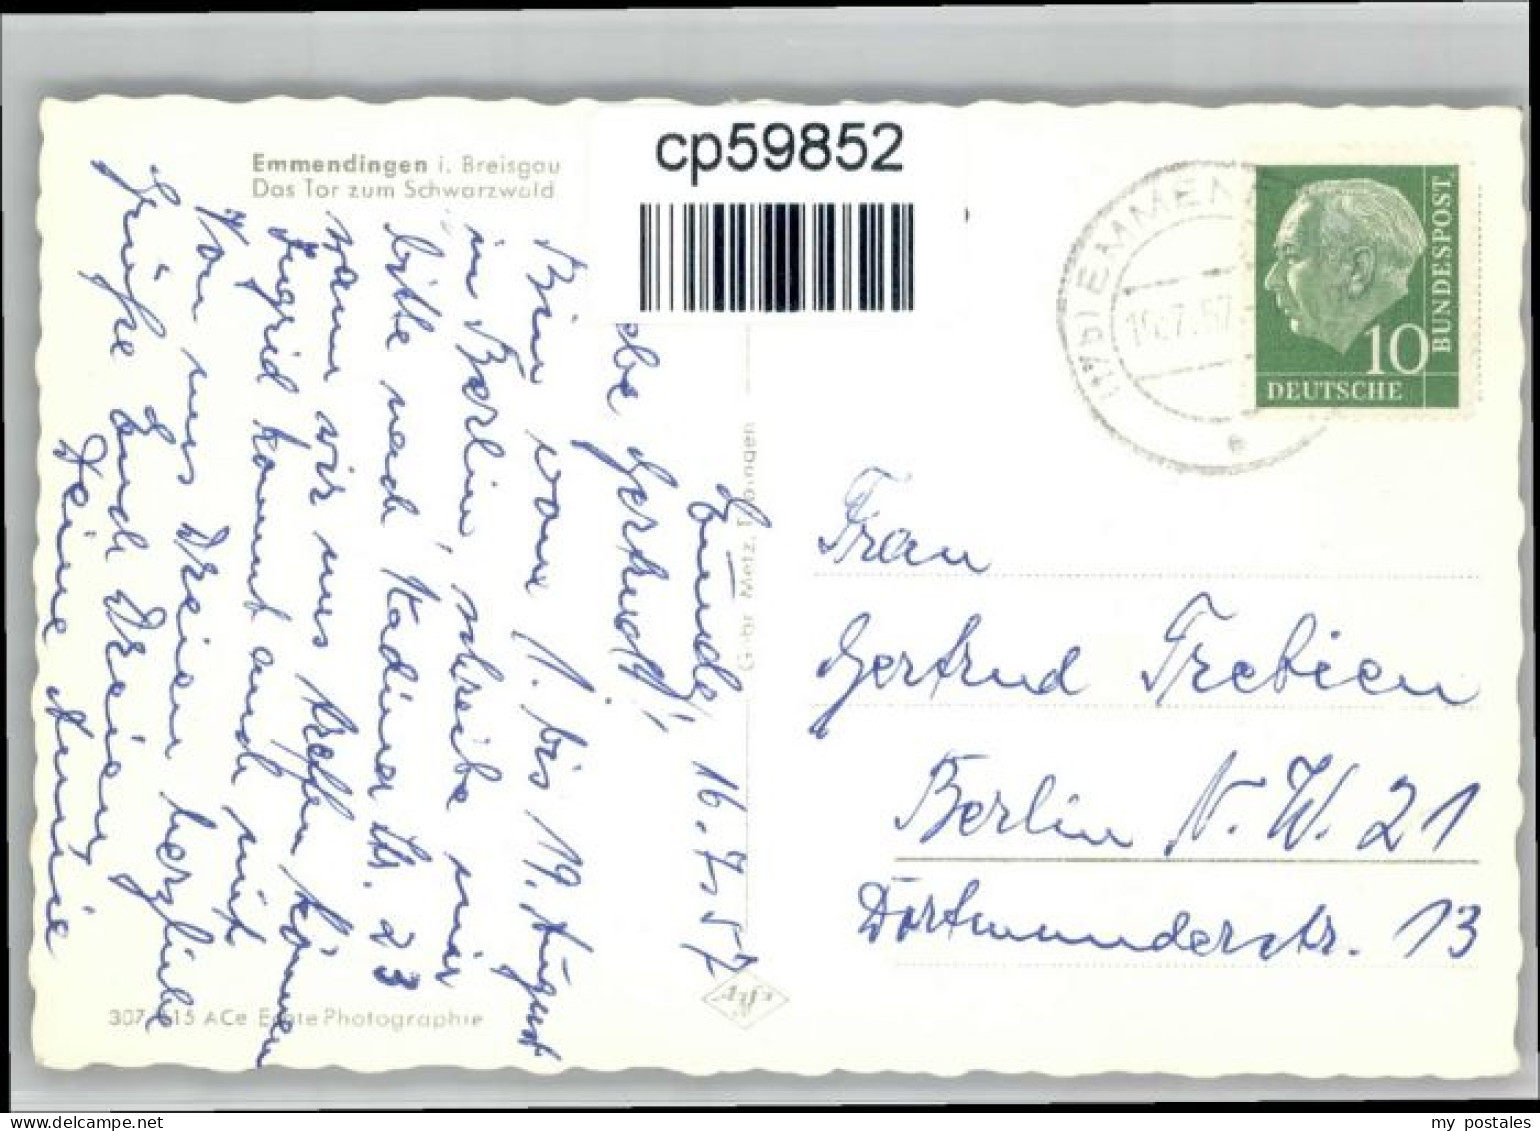 Emmendingen i. Breisgau
Das Tor zum Schwarzwald
cp59852
(17b) EMMEN
.7.57
10
DEUTSCHE
BUNDESPOST
16.7.57
ebe Gertrud!
Bin vom 1. bis 19. August
in Berlin, schreibe mir
bitte nach Kadiner Str. 23
wann wir uns treffen können
Ingrid kommt auch mit
Von uns Dreien herzliche
Grüße Euch Dreien
Deine Annie
Gebr. Metz, Tübingen
Frau
Gertrud Trebien
Berlin N.W. 21
Dortmunderstr. 13
307 615 ACe Echte Photographie
Agfa
my postales